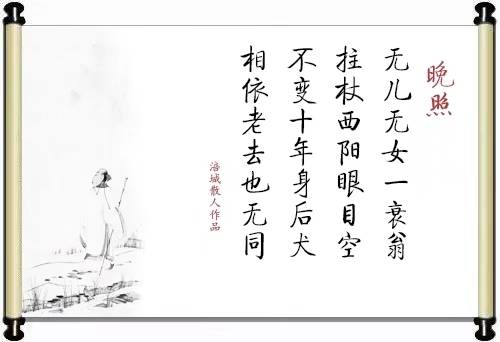 晚照
无儿无女一衰翁
拄杖西阳眼目空
不变十年身后犬
相依老去也无同
涪城散人作品